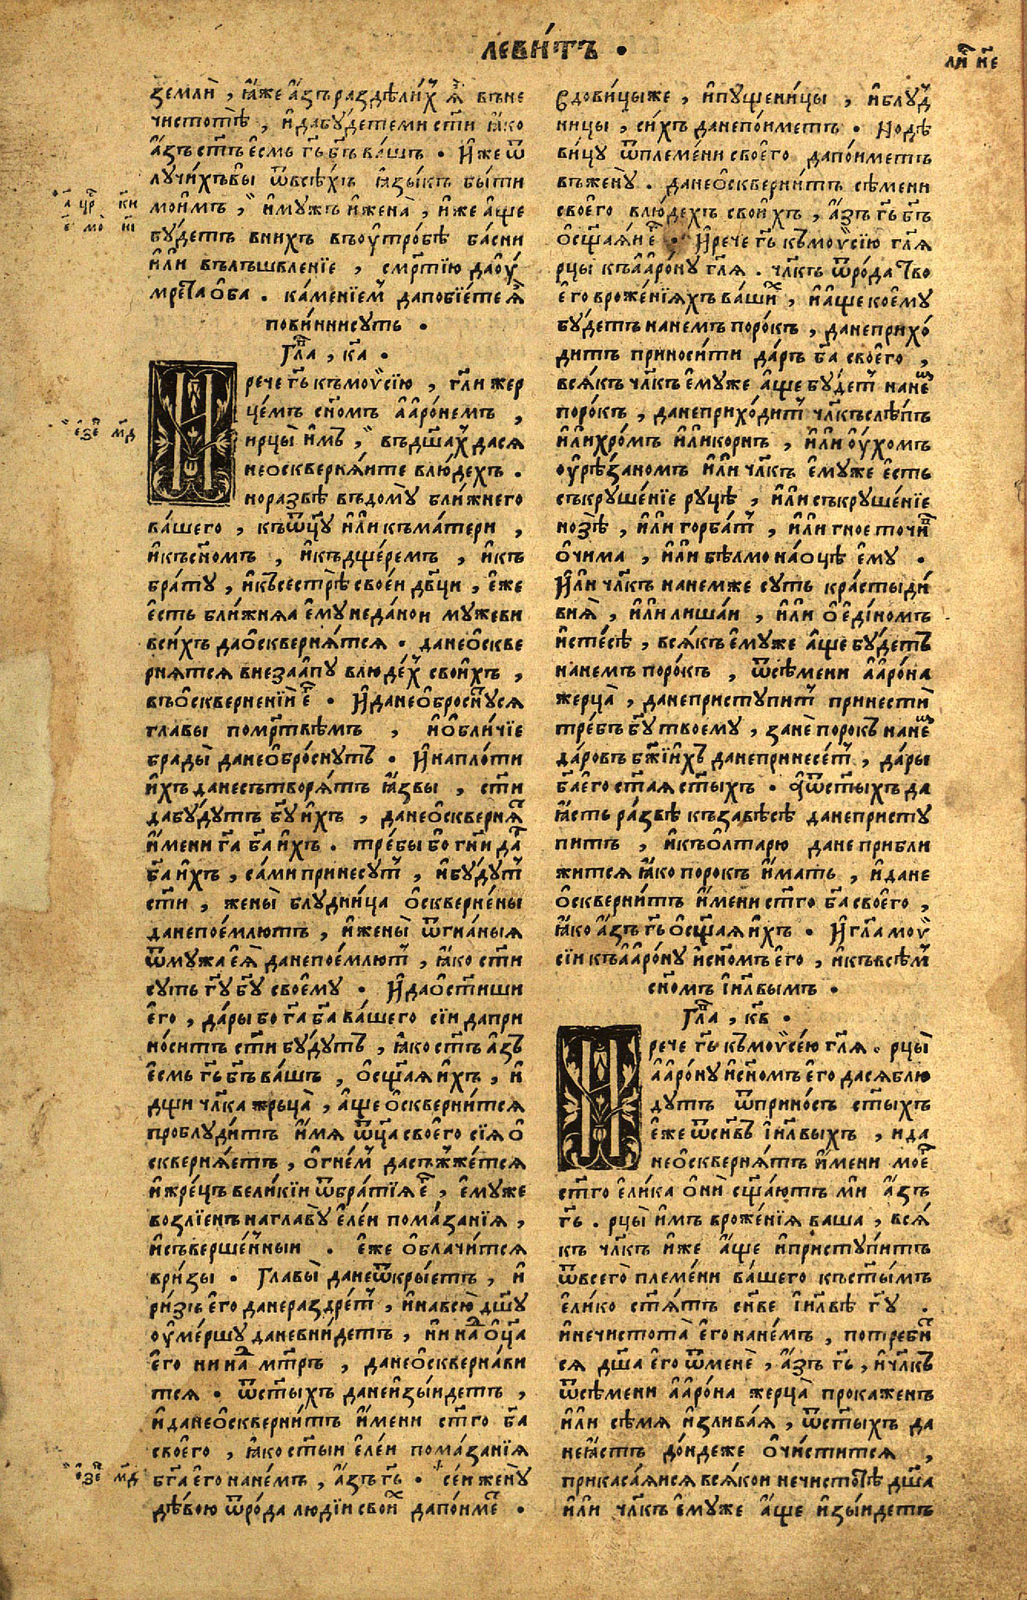 левѝтъ ·
лѝ н҃е
землѝ , ꙗ҆̀же а҆́зъ раздѣлѝх ꙗ҆̀ въ не
чистотѣ̀ , и҆ да бꙋ́дете ми ст҃и ꙗ҆́ко
а҆́зъ ст҃ъ є҆́смь гь҃ бг҃ъ ва́шъ · И҆́же ѿ
лꙋчи́хъ вы̀ ѿ всѣ́хъ ꙗ҆зы́къ бы́ти
мои́мъ , и҆ мꙋ́жъ и҆ жена̀ , и҆́же а҆́ще
бꙋ́детъ в ни́хъ въ ᲂу҆тро́бѣ ба́сни
и҆лѝ вълъшвле́нїе , сме́ртїю да ᲂу҆
мре́та ѻ҆́ба . ка́менїем да побїю́те ꙗ҆̀
пови́нни сꙋ́ть ·
Гла҃ , к҃а ·
И рече гь҃ къ моѵ҆сі́ю , гл҃и жер
це́мъ сн҃омъ а҆аро́немъ ,
и҆ рцы̀ и҆̀мъ , въ дш҃ах да ся
не ѻ҆скверня́ите в лю́дехъ .
но ра́звѣ въ домꙋ̀ бли́жнего
ва́шего , къ ѿц҃ꙋ и҆лѝ къ ма́тери ,
и҆ къ сн҃омъ , и҆ къ дще́ремъ , и҆ къ
бра́тꙋ , и҆ къ сестрѣ̀ свое́и дв҃ци , є҆́же
є҆́сть бли́жняа є҆мꙋ̀ не да́нои мꙋ́жеви
в си́хъ да ѻ҆скверня́тся · да не ѻ҆скве
рня́тся внеза́апꙋ в лю́дех свои́хъ ,
въ ѻ҆скверне́нїи є҆г · И҆ да не ѻ҆бро́снꙋ ся
главы̀ по ме́ртвѣмъ , и҆ ѻ҆бли́чїе
брады̀ да не ѻ҆бро́снꙋтъ · И҆ на пло́ти
и҆́хъ да не сътворя́тъ ꙗ҆́звы , ст҃и
да бꙋ́дꙋтъ бг҃ꙋ и҆́хъ , да не ѻ҆скверня
и҆́мени гд҃а бг҃а и҆́хъ . тре́бы бо гн҃и да
бг҃а и҆́хъ , са́ми принесꙋт , и҆ бꙋ́дꙋт
ст҃и , жены̀ блꙋдни́ца ѻ҆скверне́ны
да не пое́млютъ , и҆ жены̀ ѿгна́ныя
ѿ мꙋ́жа є҆я̀ да не пое́млют , ꙗ҆́ко ст҃и
сꙋ́ть гд҃ꙋ бг҃ꙋ своемꙋ · И҆ да ѻ҆ст҃иши
є҆го̀ , да́ры бо гд҃а бг҃а ва́шего сїи да при
но́ситъ ст҃и бꙋ́дꙋтъ , ꙗ҆́ко ст҃ъ а҆́зъ
є҆́смь гь҃ бг҃ъ ва́шъ , ѻ҆сщ҃аѧ и҆́хъ , и҆
дщи чл҃ка жрьца̀ , а҆́ще ѻ҆скверни́тся
проблꙋ́дитъ и҆́мя ѿц҃а своего сїя ѻ҆
скверня́етъ , ѻ҆гне́м да съжже́тся
и҆ жре́цъ вели́кїи ѿ бра́тїѧ є҆г , є҆мꙋ́же
возлїе́нъ на главꙋ̀ є҆ле́и пома́занїя ,
и҆ съверше́нныи . є҆́же ѻ҆блачи́тся
в ри́зы · Главы̀ да не ѿкры́етъ , и҆
ри́зъ є҆го̀ да не раздре́т , и҆ на всю̀ дш҃ꙋ
ᲂу҆ме́ршꙋ да не вни́детъ , ни на ѻ҆ц҃а
є҆го̀ ни на мт҃ръ , да не ѻ҆сквернави
тся · ѿ ст҃ыхъ да не и҆зы́идетъ ,
и҆ да не ѻ҆скверни́тъ и҆́мени ст҃го бг҃а
своего , ꙗ҆́ко ст҃ыи є҆ле́и пома́занїя
бг҃а є҆го̀ на не́мъ , а҆́зъ гь҃ · се́и женꙋ̀
дѣ́вою ѿ ро́да лю́дїи свои да по́име ·
вдови́цы же , и҆ пꙋщени́цы , и҆ блꙋд
ни́цы , си́хъ да не по́иметъ · Но дѣ
ви́цꙋ ѿ племени своего да по́иметъ
въ женꙋ̀ . да не ѻ҆скверни́тъ сѣ́мени
своего в лю́дехъ свои́хъ , а҆́зъ гь҃ бг҃ъ
ѻ҆сщ҃аѧи є҆̀ · И҆ рече гь҃ къ моѵ҆сі́ю гл҃я
рцы къ а҆аро́нꙋ гл҃я . чл҃къ ѿ ро́да тво
є҆го̀ в роже́нїяхъ ва́ши , и҆ а҆́ще коемꙋ
бꙋ́детъ на не́мъ поро́къ , да не прихо́
дитъ приноси́ти да́ръ бг҃а своего ,
вся́къ чл҃къ є҆мꙋ́же а҆́ще бꙋ́дет на не
поро́къ , да не прихо́дит чл҃къ слѣ́пъ
и҆лѝ хро́мъ и҆лѝ корнъ , и҆лѝ ᲂу҆хомъ
ᲂу҆рѣ́заномъ и҆лѝ чл҃къ є҆мꙋ́же є҆́сть
съкрꙋше́нїе рꙋцѣ̀ , и҆лѝ съкрꙋше́нїе
нозѣ̀ , и҆лѝ горба́т , и҆лѝ гноеточи
ѻ҆чи́ма , и҆лѝ бѣлмо на́ оцѣ є҆мꙋ̀ ·
И҆лѝ чл҃къ на не́мже сꙋ́ть кра́сты ди́
вия̀ , и҆лѝ лиша́и , и҆лѝ ѻ҆ є҆ди́номъ
и҆сте́сѣ , вся́къ є҆мꙋ́же а҆́ще бꙋ́детъ
на не́мъ поро́къ , ѿ сѣ́мени а҆аро́на
жерца̀ , да не пристꙋпит принестѝ
тре́бъ бг҃ꙋ твоемꙋ , занѐ поро́къ на не
даро́въ бж҃їихъ да не принесе́т , да́ры
бг҃а є҆го̀ ст҃ая ст҃ыхъ · И҆ ѿ ст҃ыхъ да
ꙗ҆́сть ра́звѣ къ завѣ́сѣ да не пристꙋ
питъ , и҆ къ ѻ҆лтарю̀ да не прибли
жи́тся ꙗ҆́ко поро́къ и҆́мать , и҆ да не
ѻ҆скверни́тъ и҆́мени ст҃го бг҃а своего ,
ꙗ҆́ко а҆́зъ гь҃ ѻ҆сщ҃аѧ и҆́хъ · И҆ гл҃а моѵ҆
сі́и къ а҆аро́нꙋ и҆ сн҃омъ є҆го̀ , и҆ къ всѣм
сн҃омъ і҆и҃лвымъ ·
Гла҃ , к҃в ·
И рече гь҃ къ моѵ҆се́ю гл҃я . рцы̀
а҆аро́нꙋ и҆ сн҃омъ є҆го̀ да ся блю
дꙋтъ ѿ прино́съ ст҃ыхъ
є҆́же ѿ сн҃въ і҆и҃лвыхъ , и҆ да
не ѻ҆скверня́тъ и҆́мени мое
ст҃го є҆ли́ка ѻ҆нѝ сщ҃а́ютъ мѝ а҆́зъ
гь҃ . рцы̀ и҆̀мъ в роже́нїя ва́ша , вся́
къ чл҃къ и҆́же а҆́ще и҆ пристꙋ́питъ
ѿ всего̀ племени ва́шего къ ст҃ы́мъ
є҆ли́ко ст҃ятъ сн҃ве і҆и҃лвѣ гд҃ꙋ .
и҆ нечистота̀ є҆го̀ на не́мъ , потреби
ся дш҃а є҆го̀ ѿ менѐ , а҆́зъ гь҃ , и҆ чл҃къ
ѿ сѣ́мени а҆аро́на жерца̀ прокаже́нъ
и҆лѝ сѣ́мя и҆злива́я , ѿ ст҃ыхъ да
не ꙗ҆́стъ до́ндеже ѻ҆чи́стится ,
прикаса́яися вся́кои нечистотѣ̀ дш҃а
и҆лѝ чл҃къ є҆мꙋ́же а҆́ще и҆зы́идетъ